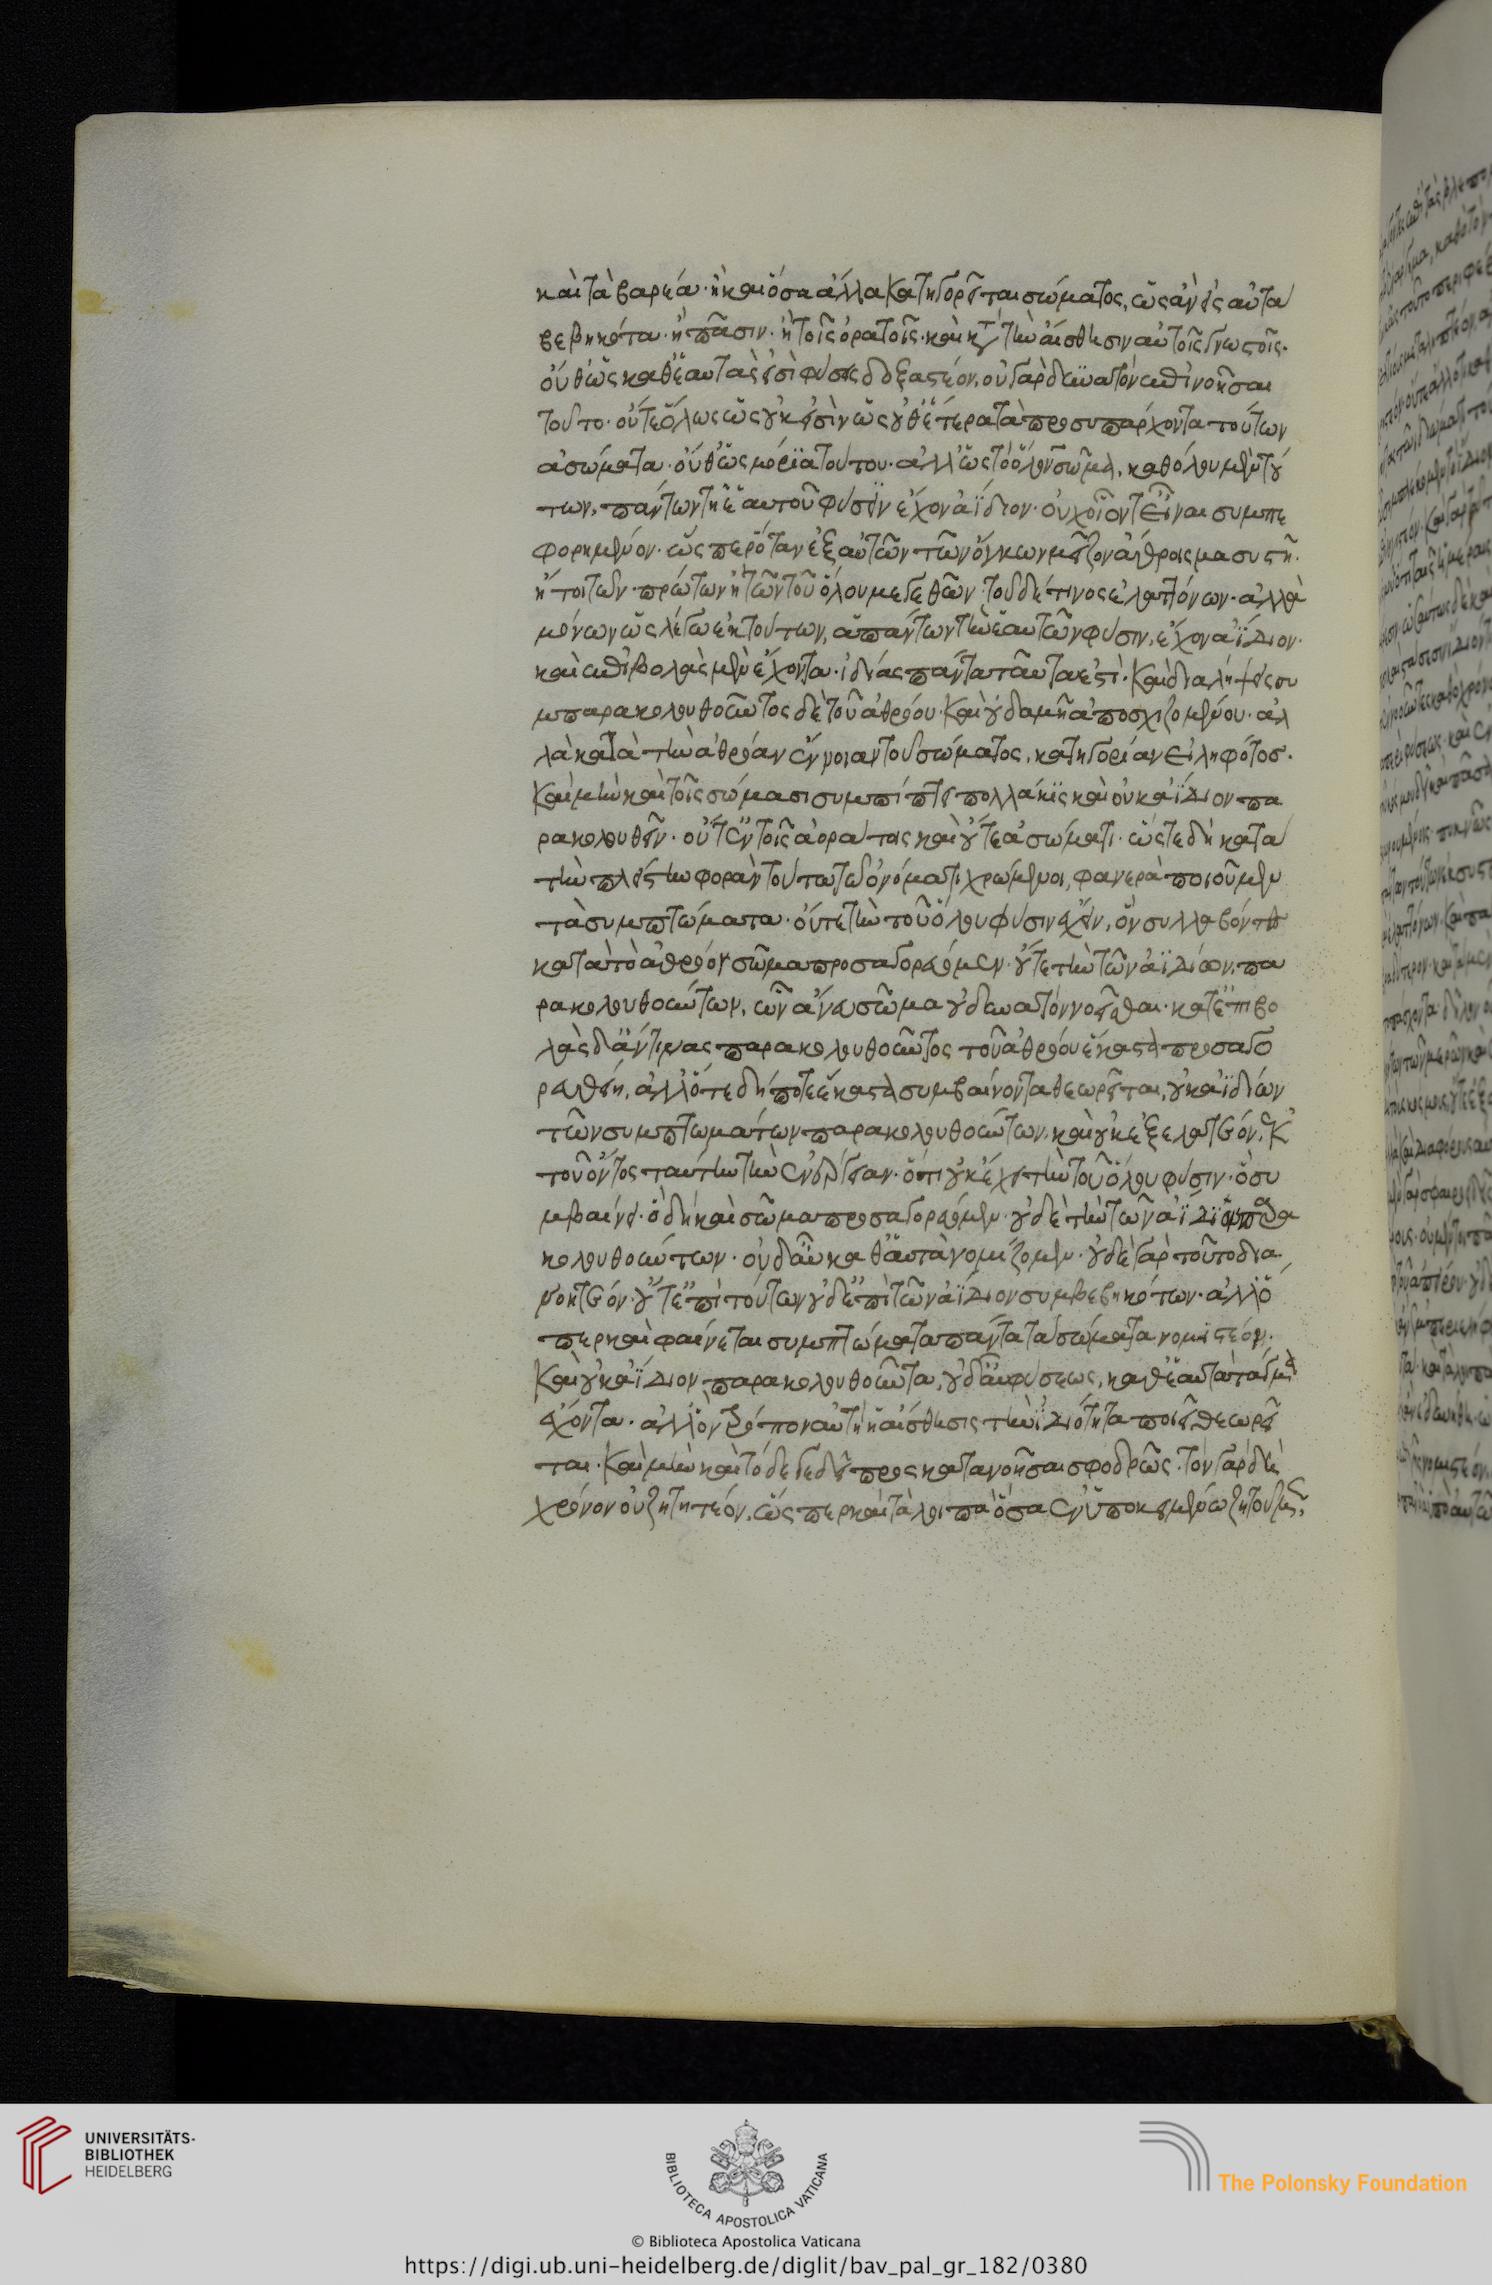 καὶ τὰ βαρέα· ἢ καὶ ὅσα ἄλλα κατηγορεῖται σώματος, ὡς ἂν εἰς αὐτὰ
βεβηκότα· ἢ πᾶσιν· ἢ τοῖς ὁρατοῖς· καὶ κατὰ τὴν αἴσθησιν αὐτοῖς γνωστοῖς·
οὔθ' ὡς καθ' ἑαυτάς εἰσὶ φύσεις δοξαστέον, οὐ γὰρ δυνατὸν ἐπινοῆσαι
τοῦτο· οὔτε ὅλως ὡς οὐκ εἰσὶν ὡς οὐθ' ἕτερα τὰ προσυπάρχοντα τούτων
ἀσώματα· οὔθ' ὡς μόρια τούτου· ἀλλ' ὡς τὸ ὅλον σῶμα, καθόλου μὲν του
των, πάντων τὴ ἑαυτοῦ φύσιν ἔχον ἀΐδιον· οὐχ οἷόν τ' εἶναι συμπε
φορημένον· ὥσπερ ὅταν ἐξ αὐτῶν τῶν ὄγκων μεῖζον ἄθροισμα συστῆ·
ἤτοι τῶν πρώτων ἢ τῶν τοῦ ὅλου μεγεθῶν τοῦ δέ τινος ἐλαττόνων· ἀλλὰ
μόνων ὡς λέγω ἐκ τούτων, ἁπάντων τὴν ἑαυτῶν φύσιν, ἔχον ἀΐδιον·
καὶ ἐπιβολὰς μὲν ἔχοντα· ἰδίας πάντα ταῦτα ἐστί· καὶ διαλήψεις συ
μπαρακολουθοῦντος δὲ τοῦ ἀθρόου· καὶ οὐδαμῆ ἀποσχιζομένου· ἀλ
λὰ κατὰ τὴν ἀθρόαν ἔννοιαν τοῦ σώματος, κατηγορίαν εἰληφότος·
καὶ μὴν καὶ τοῖς σώμασι συμπίπτει πολλάκις καὶ οὐκ ἀΐδιον πα
ρακολουθεῖν· οὔτ' ἐν τοῖς ἀοράτοις καὶ οὔτε ἀσώματι· ὥστε δὴ κατὰ
τὴν πλείστην φορὰν τούτω τῶ ὀνόματι χρώμενοι, φανερὰ ποιοῦμεν
τὰ συμπτώματα· οὔτε τὴν τοῦ ὅλου φύσιν ἔχειν, ὃν συλλαβόντες
κατὰ τὸ ἀθρόον σῶμα προσαγορεύομεν· οὔτε τὴν τῶν ἀΐδιον πα
ρακολουθούντων, ὧν ἄνευ σῶμα οὐ δυνατὸν νοεῖσθαι· κατ' ἐπιβο
λὰς δ' ἄν τινας παρακολουθοῦντος τοῦ ἀθρόου ἕκαστα προσαγο
ρευθείη, ἀλλ' ὅτε δήποτε ἕκαστα συμβαίνοντα θεωρεῖται, οὐκ ἀϊδίων
τῶν συμπτωμάτων παρακολουθούντων. καὶ οὐκ ἐξελατέον ἐκ
τοῦ ὄντος ταύτην τὴν ἐνάργειαν· ὅτι οὐκ ἔχει τὴν τοῦ ὅλου φύσιν· ᾧ συ
μβαίνει· ὃ δὴ καὶ σῶμα προσαγορεύομεν· οὐδὲ τὴν τῶν ἀΐδιον παρα
κολουθούντων· οὐδ' αὖ καθ' αὑτὰ νομίζομεν· οὐδὲ γὰρ τοῦτο δια
νοητέον· οὔτ' ἐπὶ τούτων οὐδ' ἐπὶ τῶν ἀΐδιον συμβεβηκότων· ἀλλ' ὅ
περ καὶ φαίνεται συμπτώματα πάντα τὰ σώματα νομιστέον·
καὶ οὐκ ἀΐδιον παρακολουθοῦντα, οὐδ' αὖ φύσεως, καθ' ἑαυτὰ τάγμα
ἔχοντα· ἀλλ' ὃν τρόπον αὐτὴ ἡ αἴσθησις τὴν ἰδιότητα ποιεῖ, θεωρεῖ
ται· καὶ μὴν καὶ τόδε γε δεῖ προσκατανοῆσαι σφοδρῶς· τὸν γὰρ δὴ
χρόνον οὐ ζητητέον, ὥσπερ καὶ τὰ λοιπὰ ὅσα ἐν ὑποκειμένω ζητοῦμεν,
UNIVERSITÄTS-
BIBLIOTHEK
HEIDELBERG
BIBLIOTECA APOSTOLICA VATICANA
© Biblioteca Apostolica Vaticana
The Polonsky Foundation
https://digi.ub.uni-heidelberg.de/diglit/bav_pal_gr_182/0380